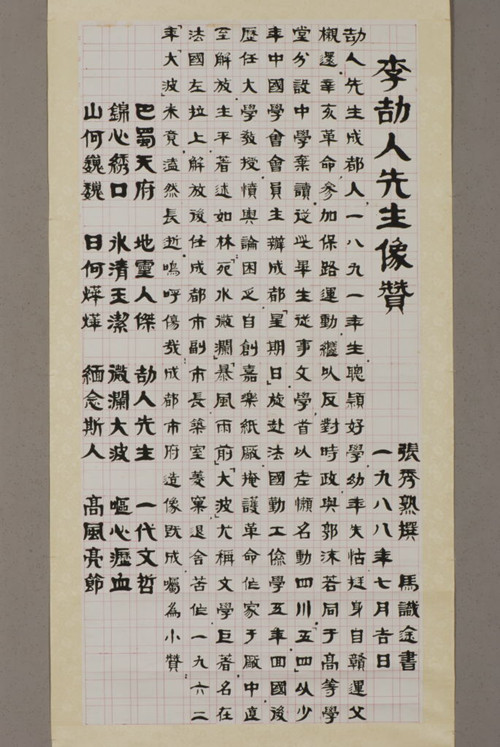 李劼人先生像贊
張秀熟撰 馬識途書
一九八八年七月吉日
劼人先生成都人，一八九一年生，聰穎好學，幼年失怙，挺身自贛運父
櫬還。辛亥革命，參加保路運動，繼以反對時政，與郭沫若同于高等學
堂分設中學棄讀，從此畢生從事文學，首以老懶名動四川。「五四」以少
年中國學會會員主辦成都「星期日」，旋赴法國勤工儉學，五年回國後，
歷任大學教授，憤輿論困乏，自創嘉樂紙廠，掩護革命作家于廠中，直
至解放。生平著述如林，「死水微瀾」「暴風雨前」「大波」尤稱文學巨著，名在
法國左拉上。解放後任成都市副市長，築室菱窠，退舍苦作。一九六二
年「大波」未竟，溘然長逝，嗚呼傷哉！成都市府造像既成，囑為小贊：
巴蜀天府 地靈人傑 劼人先生 一代文哲
錦心綉口 冰清玉潔 微瀾大波 嘔心瀝血
山何巍巍 日何燁燁 緬念斯人 高風亮節